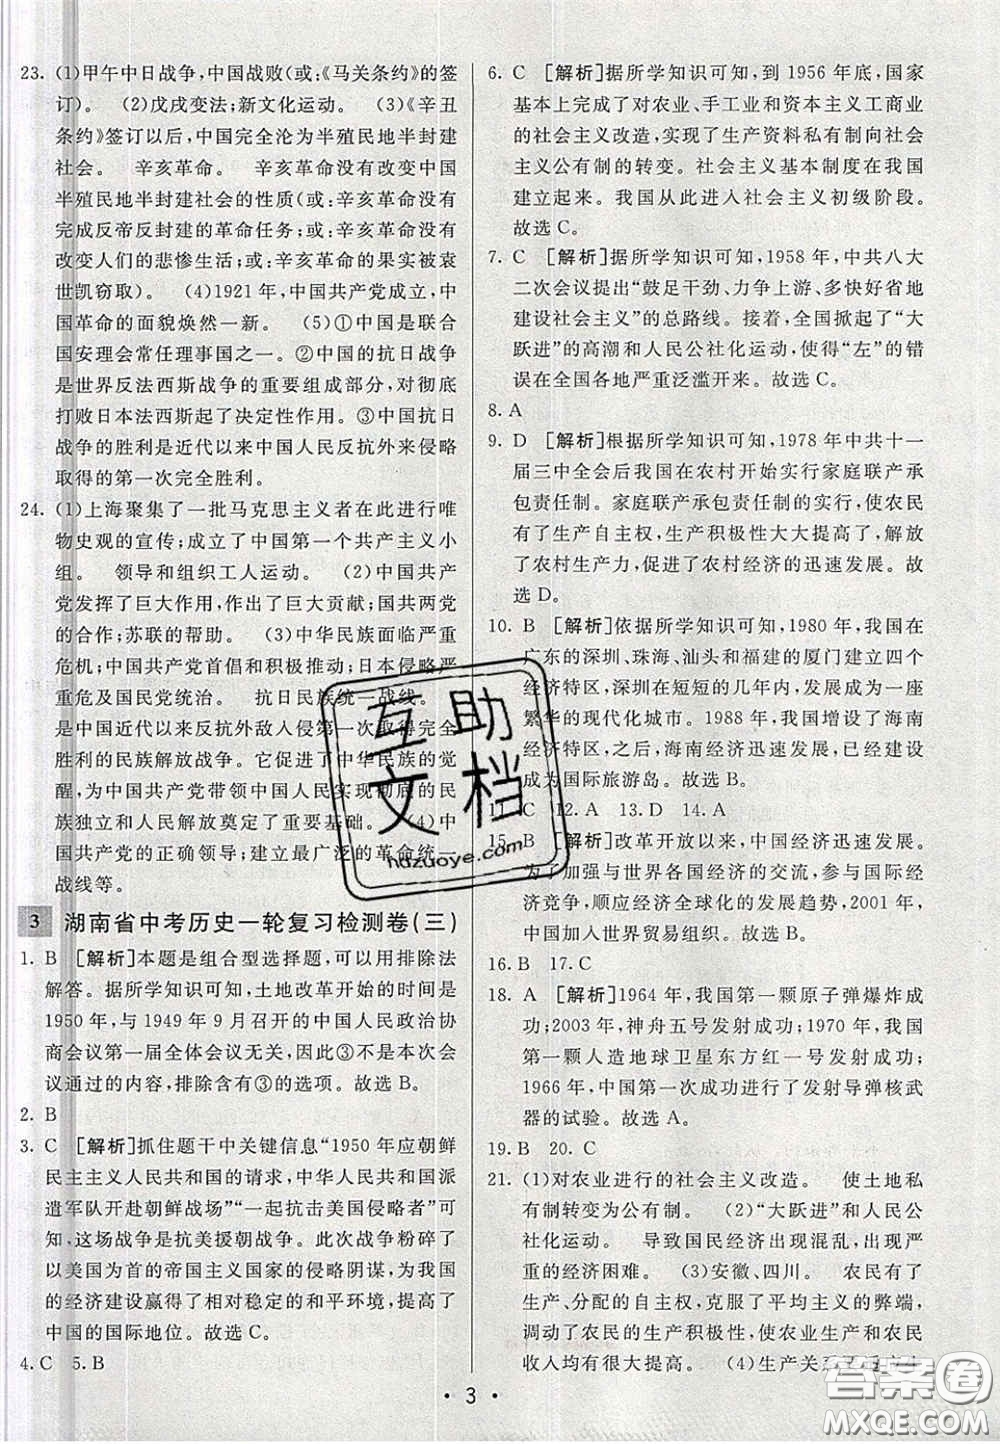 23. (1)甲午中日战争,中国战败(或:《马关条约》的签
订)。 (2)戊戌变法;新文化运动。 (3)《辛丑
条约》签订以后,中国完全沦为半殖民地半封建
社会。 辛亥革命。 辛亥革命没有改变中国
半殖民地半封建社会的性质(或:辛亥革命没有
完成反帝反封建的革命任务;或:辛亥革命没有
改变人们的悲惨生活;或:辛亥革命的果实被袁
世凯窃取)。 (4)1921年,中国共产党成立,中
国革命的面貌焕然一新。 (5)①中国是联合
国安理会常任理事国之一。②中国的抗日战争
是世界反法西斯战争的重要组成部分,对彻底
打败日本法西斯起了决定性作用。③中国抗日
战争的胜利是近代以来中国人民反抗外来侵略
取得的第一次完全胜利。
24. (1)上海聚集了一批马克思主义者在此进行唯
物史观的宣传;成立了中国第一个共产主义小
组。 领导和组织工人运动。 (2)中国共产
党发挥了巨大作用,作出了巨大贡献;国共两党
的合作;苏联的帮助。 (3)中华民族面临严重
危机;中国共产党首倡和积极推动;日本侵略严
重危及国民党统治。 抗日民族统一战线。
是中国近代以来反抗外敌入侵第一次取得完全
胜利的民族解放战争。它促进了中华民族的觉
醒,为中国共产党带领中国人民实现彻底的民
族独立和人民解放奠定了重要基础。 (4)中
国共产党的正确领导;建立最广泛的革命统一
战线等。
3 湖南省中考历史一轮复习检测卷(三)
1. B [解析]本题是组合型选择题,可以用排除法
解答。据所学知识可知,土地改革开始的时间是
1950年,与1949年9月召开的中国人民政治协
商会议第一届全体会议无关,因此③不是本次会
议通过的内容,排除含有③的选项。故选B。
2. B
3. C [解析]抓住题干中关键信息“1950年应朝鲜
民主主义人民共和国的请求,中华人民共和国派
遣军队开赴朝鲜战场”“一起抗击美国侵略者”可
知,这场战争是抗美援朝战争。此次战争粉碎了
以美国为首的帝国主义国家的侵略阴谋,为我国
的经济建设赢得了相对稳定的和平环境,提高了
中国的国际地位。故选C。
4.C 5.B
6. C [解析]据所学知识可知,到1956年底,国家
基本上完成了对农业、手工业和资本主义工商业
的社会主义改造,实现了生产资料私有制向社会
主义公有制的转变。社会主义基本制度在我国
建立起来。我国从此进入社会主义初级阶段。
故选C。
7. C [解析]据所学知识可知,1958年,中共八大
二次会议提出“鼓足干劲、力争上游、多快好省地
建设社会主义”的总路线。接着,全国掀起了“大
跃进”的高潮和人民公社化运动,使得“左”的错
误在全国各地严重泛滥开来。故选C。
8. A
9. D [解析]根据所学知识可知,1978年中共十一
届三中全会后我国在农村开始实行家庭联产承
包责任制。家庭联产承包责任制的实行,使农民
有了生产自主权,生产积极性大大提高了,解放了
农村生产力,促进了农村经济的迅速发展。故
选D。
10. B [解析]依据所学知识可知,1980年,我国在
广东的深圳、珠海、汕头和福建的厦门建立四个
经济特区,深圳在短短的几年内,发展成为一座
繁华的现代化城市。1988年,我国增设了海南
经济特区,之后,海南经济迅速发展,已经建设
成为国际旅游岛。故选B。
11. C 12. A 13. D 14. A
15. B [解析]改革开放以来,中国经济迅速发展。
为了加强与世界各国经济的交流,参与国际经
济竞争,顺应经济全球化的发展趋势,2001年,
中国加入世界贸易组织。故选B。
16. B 17. C
18. A [解析]1964年,我国第一颗原子弹爆炸成
功;2003年,神舟五号发射成功;1970年,我国
第一颗人造地球卫星东方红一号发射成功;
1966年,中国第一次成功进行了发射导弹核武
器的试验。故选A。
19. B 20. C
21. (1)对农业进行的社会主义改造。 使土地私
有制转变为公有制。 (2)“大跃进”和人民公
社化运动。 导致国民经济出现混乱,出现严
重的经济困难。 (3)安徽、四川。 农民有了
生产、分配的自主权,克服了平均主义的弊端,
调动了农民的生产积极性,使农业生产和农民
收入均有很大提高。 (4)生产关系
• 3 •
互助
文档
hdzuoye.com
答案圈
MXQE.COM